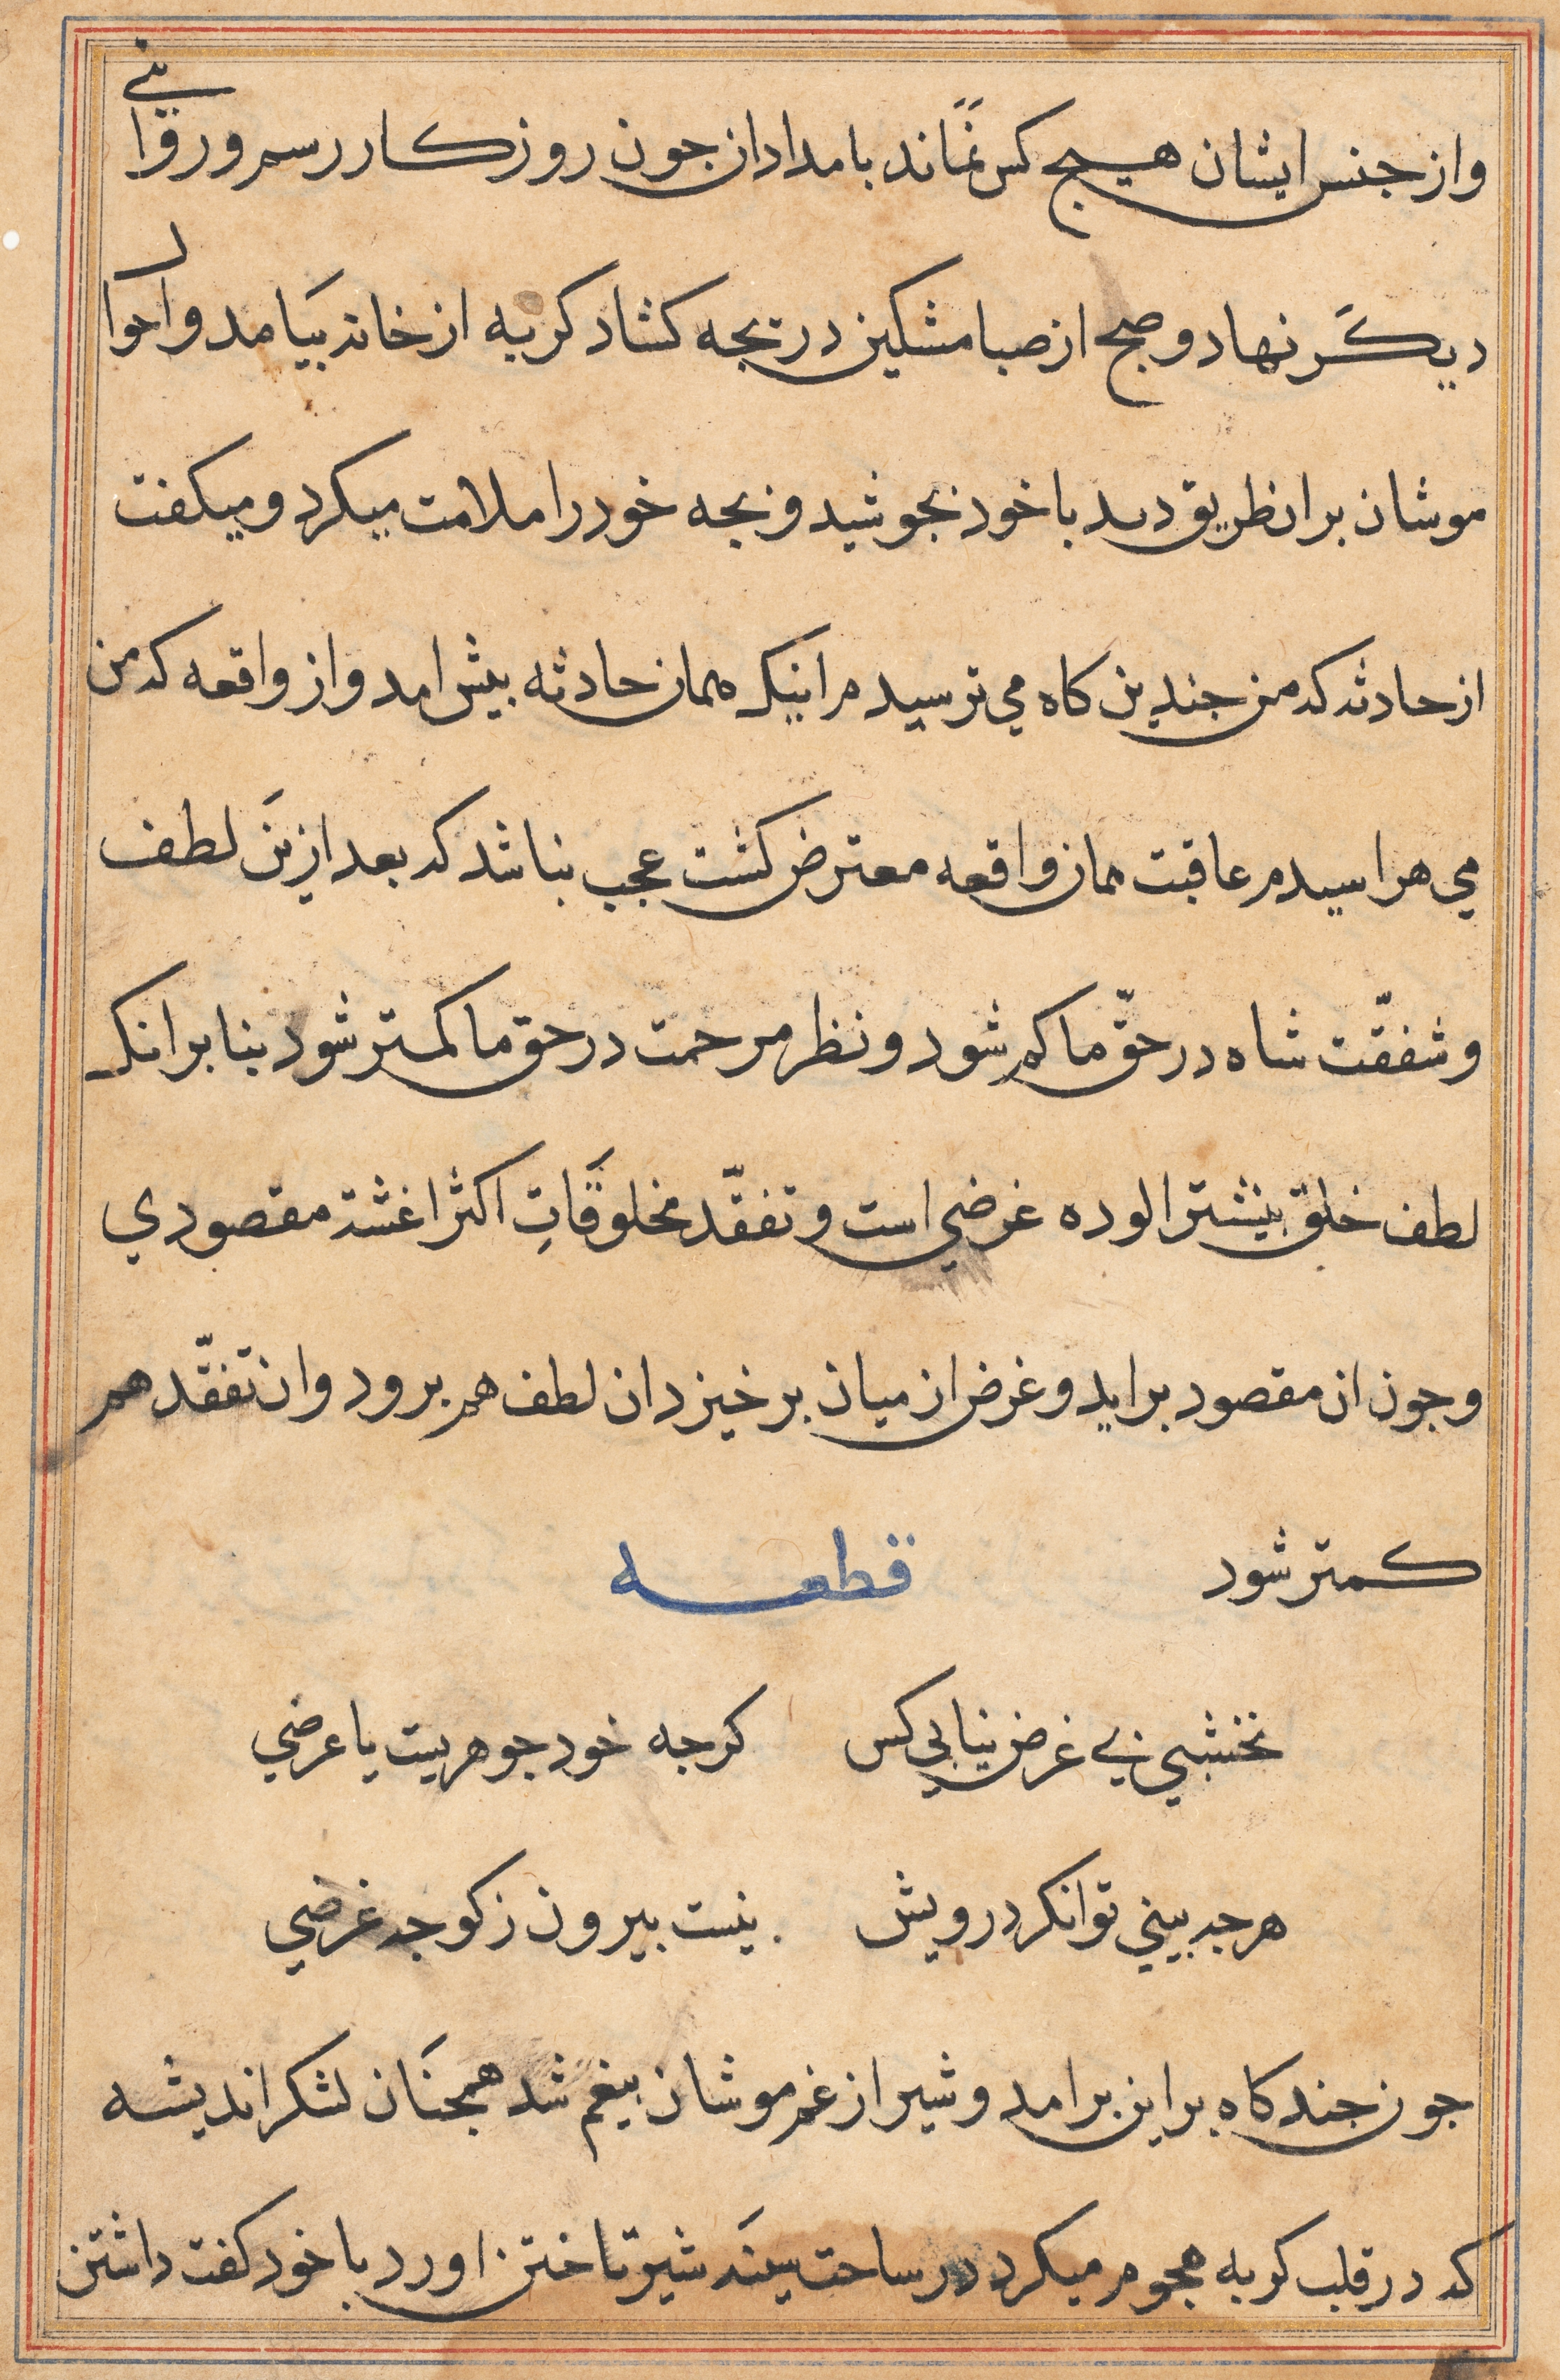 واز جنس ایشان هیچ کس نماند بامدادان جون روزکار رسم ورقانی
دیکر نهاد و صبح از صبا مشکین دریجه کشاد کربه از خانه بیامد و احوال
موشان بران طریق دید باخود بجوشید و بجه خود را ملامت میکرد و میکفت
از حادثه که من جندین کاه می ترسیدم اینک همان حادثه بیش امد و از واقعه که من
می هراسیدم عاقبت همان واقعه معترض کشت عجب نباشد که بعد ازین لطف
و شفقّت شاه در حقّ ما کم شود و نظر مرحمت در حق ما کمتر شود بنا بر انک
لطف خلق بیشتر الوده غرضی است و تفقّد مخلوقات اکثر اغشته مقصودی
و جون ان مقصود براید و غرض از میان برخیزد ان لطف هم برود و ان تفقّد هم
کمتر شود قطعه
نخشبی بی غرض نیابی کس کرجه خود جوهریست یا عرضی
هرجه بینی توانکر درویش نیست بیرون ز کوجه غرضی
جون جند کاه براین برامد و شیر از غم موشان بیغم شد همجنان لشکر اندیشه
که در قلب کربه هجوم میکرد در ساحت سینه شیر تاختن اورد با خود کفت داشتن